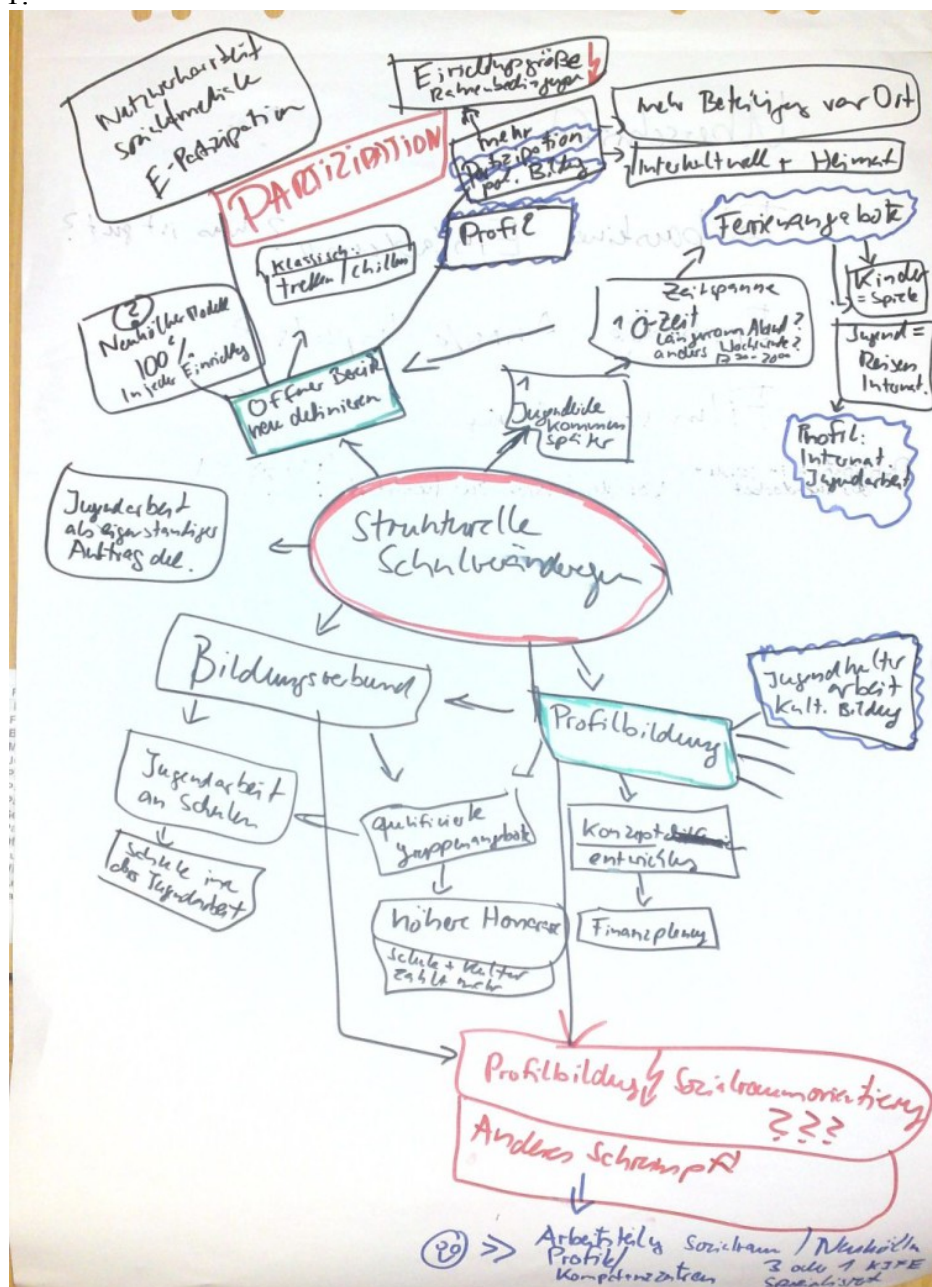 Netzwerkarbeit
socialmedia
E-Partizipation
PARTIZIPATION
Einrichtungsgröße
Rahmenbedingungen
mehr
Partizipation
pol. Bildung
mehr Beteiligung vor Ort
Interkulturell + Heimat
Profil
Ferienangebote
Klassisch:
treffen / chillen
Kinder
= Spiele
Zeitspanne
Ö-Zeit
Länger am Abend?
anders Wochenende?
Jugend =
Reisen
Internat.
?
Neuköllner Modell
100%
In jeder Einrichtung
Offener Bereich
neu definieren
Jugendliche
kommen
später
Profil:
Internat.
Jugendarbeit
Jugendarbeit
als eigenständiger
Auftrag
Strukturelle
Schulveränderungen
Bildungsverbund
Profilbildung
Jugendkultur
arbeit
Kult. Bildung
Jugendarbeit
an Schulen
qulifizierte
gruppenangebote
Konzept
entwicklung
Schule in
der Jugendarbeit
höhere Honorare
Schule + Kultur
zahlt mehr
Finanzplanung
Profilbildung Sozialraumorientierung
???
Anderes
Arbeitsteilg Sozialraum / Neukölln
Profile/ 3 oder 1 KJFE
Kompetenzzentren